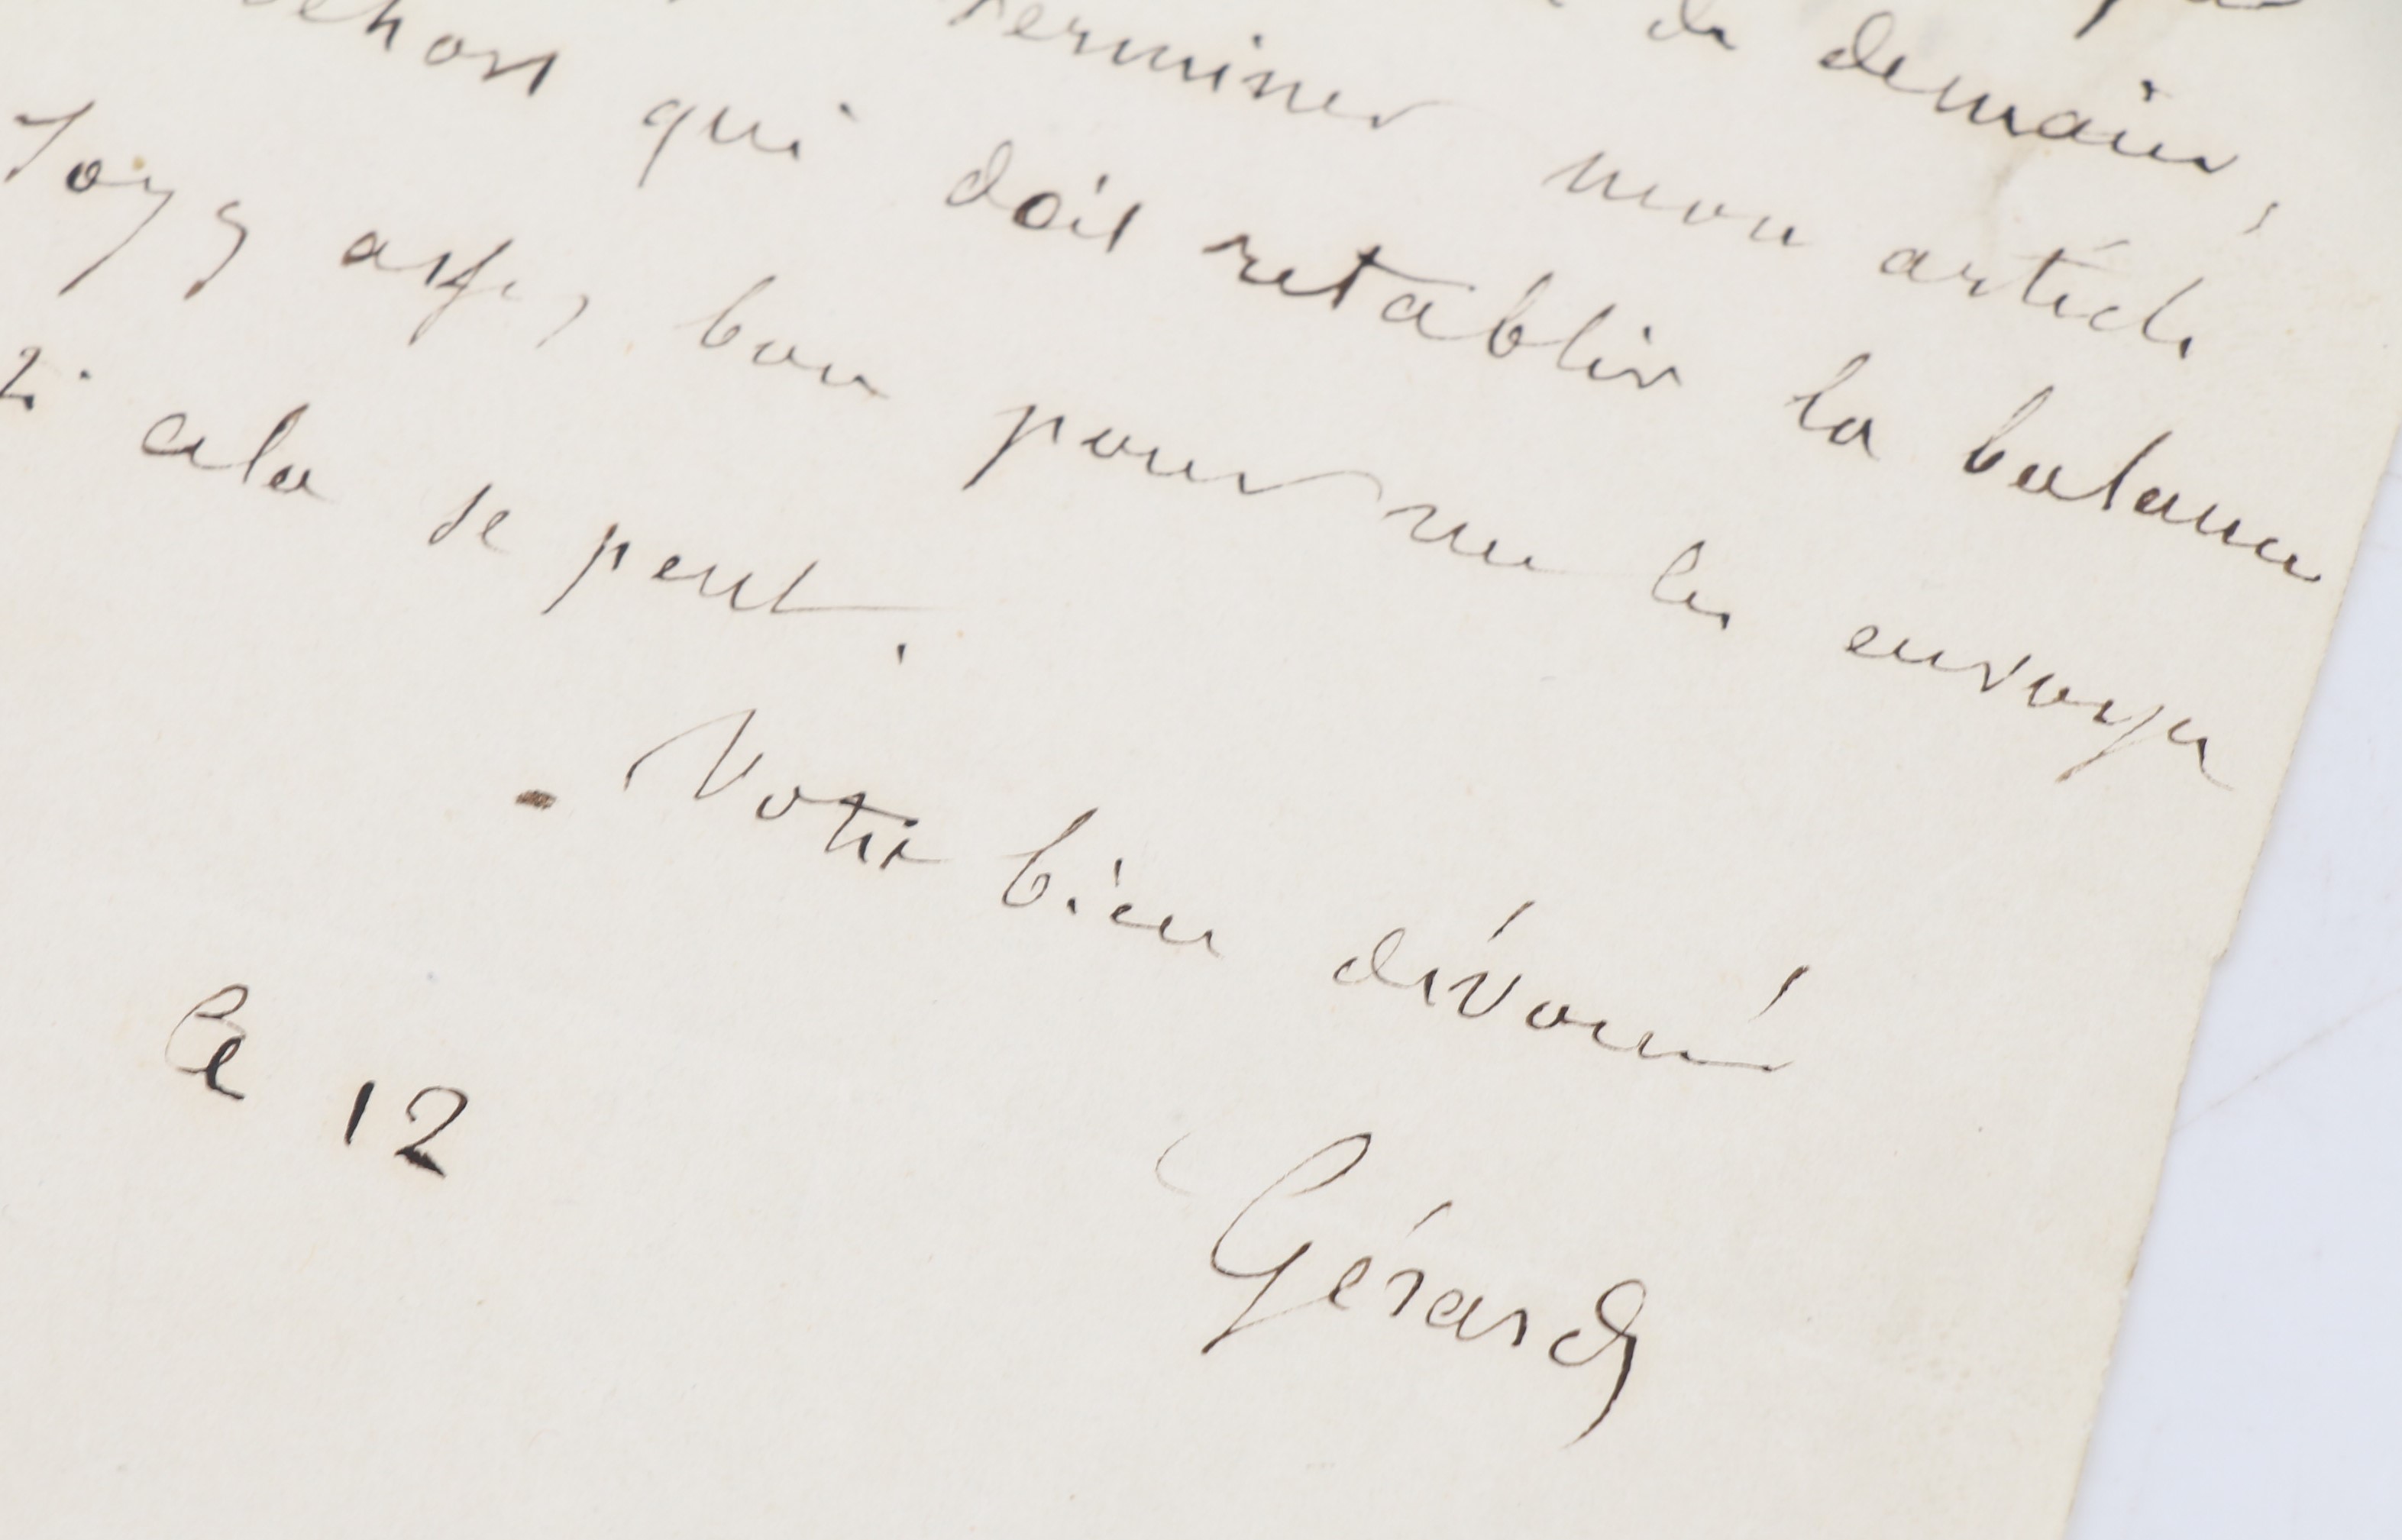 de demain,
terminer mon article
dehors qui doit rétablir la balance
Soyez assez bon pour me les envoyer
si cela se peut.
Votre bien dévoué
Gérard
Ce 12